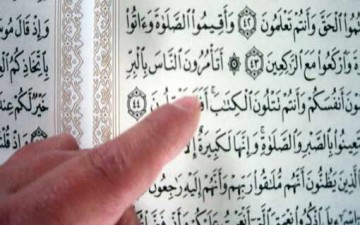 تموا الحق وأنتم تعلمون ٤٢ وأقيموا الصلوة وءاتوا
وة واركعوا مع الركعين ٤٣ أتأمرون الناس بالبر
ون أنفسكم وأنتم تتلون الكتب ٤٤
تعينوا بالصبر والصلوة وإنها لكبيرة
الذين يظنون أنهم ملقوا ربهم وأنهم إليه رجعون
وإذ قال مو
باتخاذكم الع
خير لكم عند